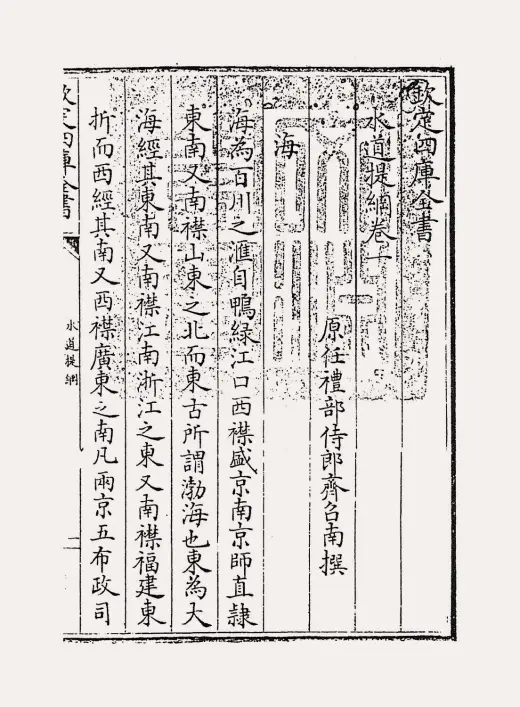 欽定四庫全書
水道提綱卷一
原任禮部侍郎齊召南撰
海
海為百川之滙自鴨緑江口西襟盛京南京師直𨽻
東南又南襟山東之北而東古所謂渤海也東為大
海經其東南又南襟江南浙江之東又南襟福建東
折而西經其南又西襟廣東之南凡兩京五布政司
欽定四庫全書
水道提綱